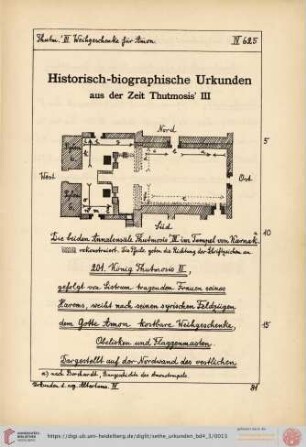 Thutm. III Weihgeschenke für Amon. IV 625
Historisch-biographische Urkunden
aus der Zeit Thutmosis' III
Nord
5
West
Ost
Süd
Die beiden Annalensäle Thutmosis' III im Tempel von Karnak a
10
rekonstruiert. Die Pfeile geben die Richtung der Schriftzeichen an.
201. König Thutmosis III,
gefolgt von Sistrum tragenden Frauen seines
Harems, weiht nach seinen syrischen Feldzügen
dem Gotte Amon kostbare Weihgeschenke,
15
Obelisken und Flaggenmasten.
Dargestellt auf der Nordwand des westlichen
a) nach Borchardt, Baugeschichte des Amonstempels
Urkunden d. ägg. Altertums. IV
https://digi.ub.uni-heidelberg.de/diglit/sethe_urkunden_bd4_3/0011